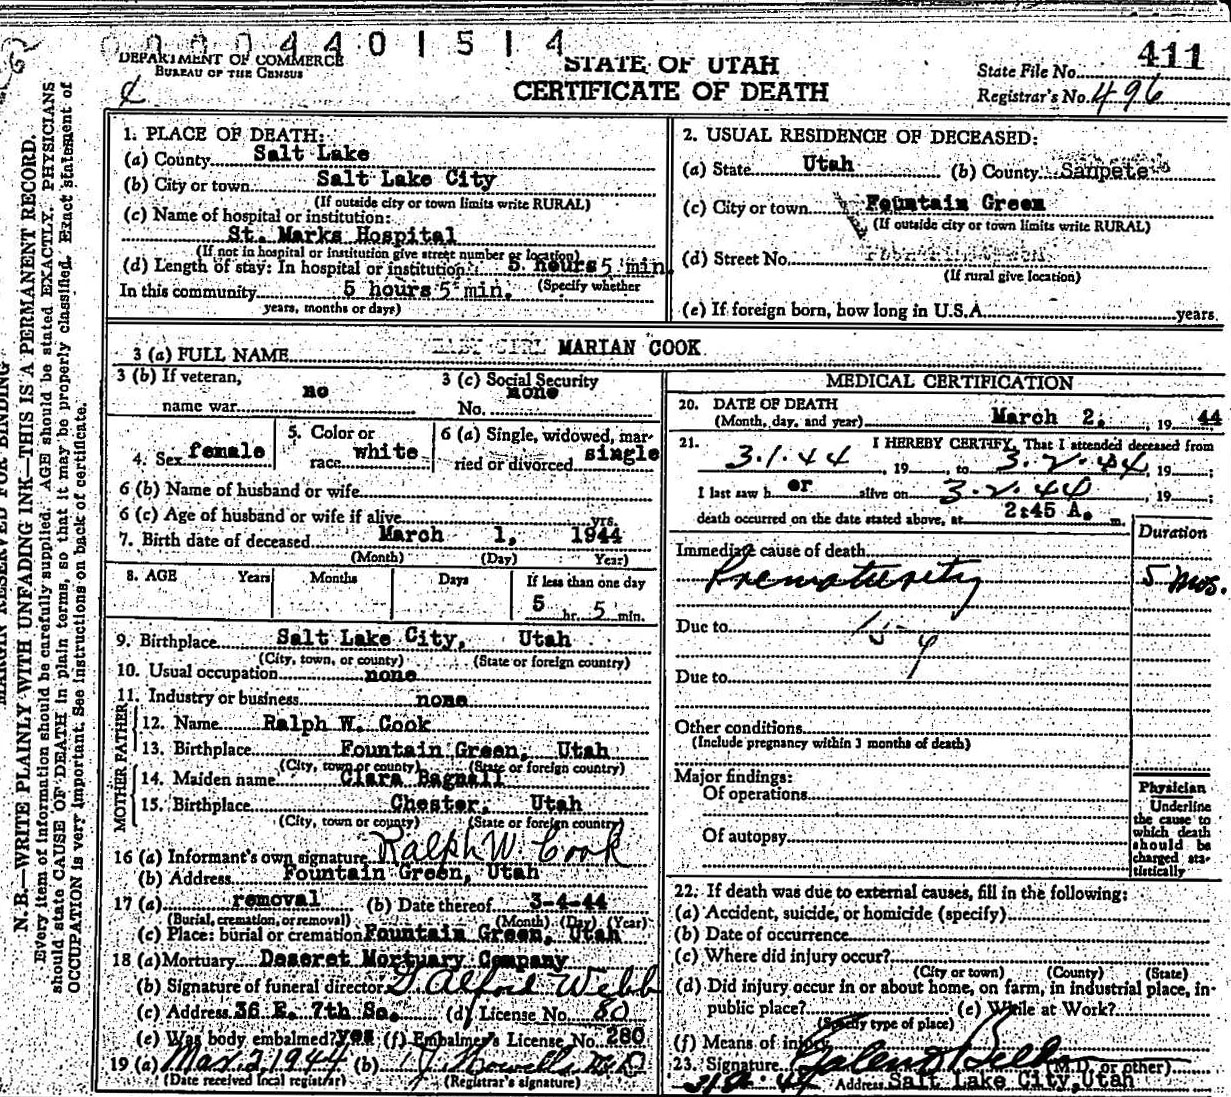 0 0 0 4 4 0 1 5 1 4
DEPARTMENT OF COMMERCE
BUREAU OF THE CENSUS
STATE OF UTAH
CERTIFICATE OF DEATH
411
State File No.
Registrar's No. 496
MARGIN RESERVED FOR BINDING
N. B.—WRITE PLAINLY WITH UNFADING INK—THIS IS A PERMANENT RECORD.
Every item of information should be carefully supplied. AGE should be stated EXACTLY. PHYSICIANS
should state CAUSE OF DEATH in plain terms, so that it may be properly classified. Exact statement of
OCCUPATION is very important. See instructions on back of certificate.
1. PLACE OF DEATH:
(a) County Salt Lake
(b) City or town Salt Lake City
(If outside city or town limits write RURAL)
(c) Name of hospital or institution:
St. Marks Hospital
(If not in hospital or institution give street number or location)
(d) Length of stay: In hospital or institution 5 hours 5 min.
(Specify whether
In this community 5 hours 5 min.
years, months or days)
2. USUAL RESIDENCE OF DECEASED:
(a) State Utah (b) County Sanpete
(c) City or town Fountain Green
(If outside city or town limits write RURAL)
(d) Street No.
(If rural give location)
(e) If foreign born, how long in U.S.A. years.
3 (a) FULL NAME BABY GIRL MARIAN COOK
3 (b) If veteran, name war no
3 (c) Social Security No. none
4. Sex female
5. Color or race white
6 (a) Single, widowed, married or divorced single
6 (b) Name of husband or wife
6 (c) Age of husband or wife if alive yrs.
7. Birth date of deceased March 1, 1944
(Month) (Day) Year)
8. AGE Years Months Days If less than one day
5 hr. 5 min.
9. Birthplace Salt Lake City, Utah
(City, town, or county) (State or foreign country)
10. Usual occupation none
11. Industry or business none
FATHER
12. Name Ralph W. Cook
13. Birthplace Fountain Green, Utah
(City, town or county) (State or foreign country)
MOTHER
14. Maiden name Clara Bagnall
15. Birthplace Chester, Utah
(City, town or county) (State or foreign country)
16 (a) Informant's own signature Ralph W. Cook
(b) Address Fountain Green, Utah
17 (a) removal (b) Date thereof 3-4-44
(Burial, cremation, or removal) (Month) (Day) (Year)
(c) Place: burial or cremation Fountain Green, Utah
18 (a) Mortuary Deseret Mortuary Company
(b) Signature of funeral director D Alfred Webb
(c) Address 36 E. 7th So. (d) License No. 80
(e) Was body embalmed? yes (f) Embalmer's License No. 280
19 (a) Mar. 2, 1944 (b)
(Date received local registrar) (Registrar's signature)
MEDICAL CERTIFICATION
20. DATE OF DEATH
(Month, day, and year) March 2, 19 44
21. I HEREBY CERTIFY, That I attended deceased from
3.1.44, 19, to 3.2.44, 19;
I last saw h er alive on 3.2.44, 19;
death occurred on the date stated above, at 2:45 A. m.
Duration
Immediate cause of death
Prematurity 5 mos.
Due to
Due to
Other conditions
(Include pregnancy within 3 months of death)
Major findings:
Of operations
Of autopsy
Physician
Underline
the cause to
which death
should be
charged sta-
tistically
22. If death was due to external causes, fill in the following:
(a) Accident, suicide, or homicide (specify)
(b) Date of occurrence
(c) Where did injury occur?
(City or town) (County) (State)
(d) Did injury occur in or about home, on farm, in industrial place, in-
public place? (e) While at Work?
(Specify type of place)
(f) Means of injury
23. Signature (M.D. or other)
Address Salt Lake City, Utah